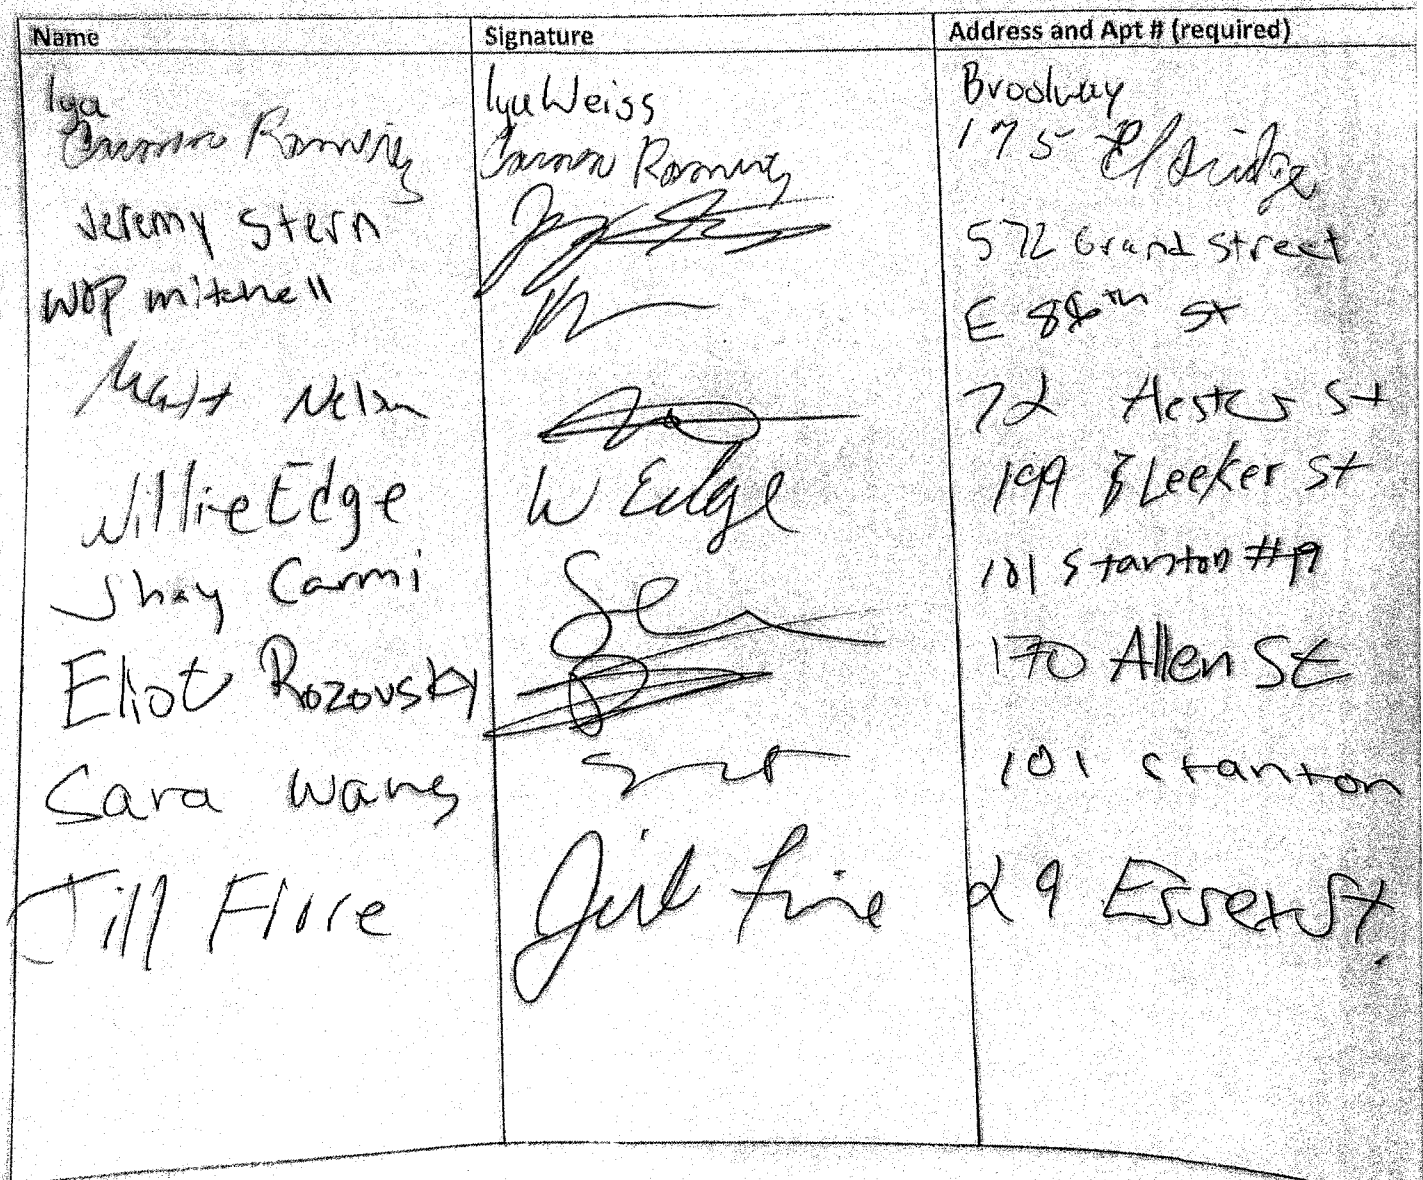 Name Signature Address and Apt # (required)
Iya Iya Weiss Brodway
Carmen Ramirez Carmen Ramirez 175 Eldridge
Jeremy Stern 572 Grand Street
mitchell E 86th St
Matt Nelson 72 Hester St
Willie Edge W Edge 199 Bleeker St
Shay Carmi 101 Stanton #19
Eliot Rozovsky 170 Allen St
Sara Wang 101 Stanton
Jill Jill Fiore 29 Essex St.